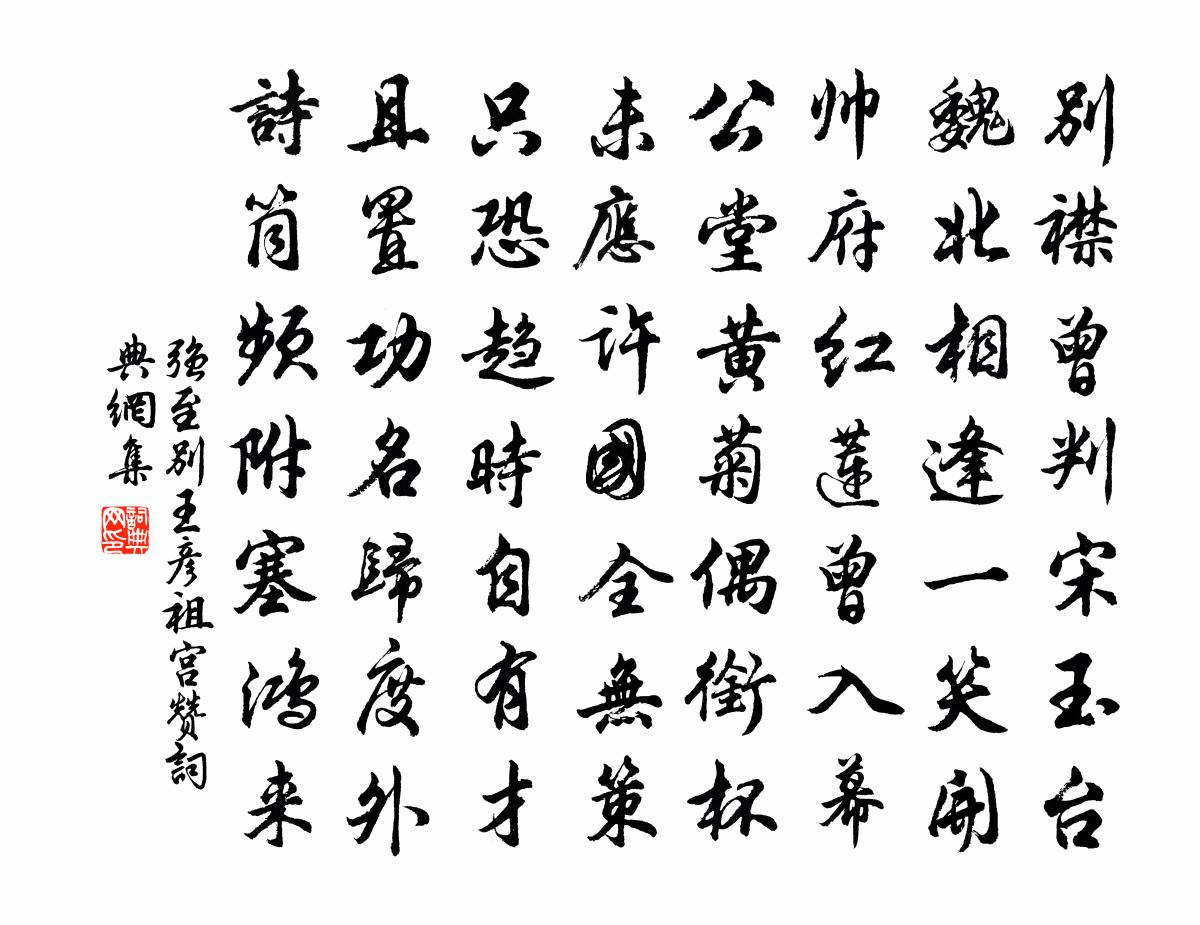 別襟曾判宋玉台
魏北相逢一笑開
帅府红蓮曾入幕
公堂黃菊偶銜杯
未應许國全無策
只恐趋時自有才
且置功名歸度外
詩筒频附塞鸿来
强至别王彦祖宫赞詞
典網集
詞典网印